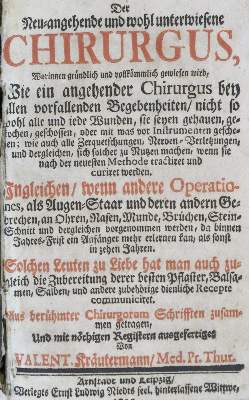 Der
Neu-angehende und wohl unterwiesene
CHIRURGUS,
Worinnen gründlich und vollkömmlich gewiesen wird/
Wie ein angehender Chirurgus bey
allen vorfallenden Begebenheiten/ nicht so
wohl alle und jede Wunden, sie seyen gehauen, ge-
stochen/ geschossen; oder mit was vor Instrumenten gesche-
hen; wie auch alle Zerquetschungen, Nerven-Verletzungen,
und dergleichen, sich solcher zu Nutzen machen, wenn sie
nach der neuesten Methode tractiret und
curiret werden.
Ingleichen/ wenn andere Operatio-
nes, als Augen-Staar und deren andern Ge-
brechen, an Ohren, Nasen, Munde, Brüchen, Stein-
Schnitt und dergleichen vorgenommen werden, da binnen
Jahres-Frist ein Anfänger mehr erlernen kan, als sonst
in zehen Jahren.
Solchen Leuten zu Liebe hat man auch zu-
gleich die Zubereitung derer besten Pflaster, Balsa-
men, Salben, und andere zubehörige dienliche Recepte
communiciret.
Aus berühmter Chirurgorum Schrifften zusam-
men getragen,
Und mit nöthigen Registern ausgefertiget
Von
VALENT. Kräutermann/ Med. Pr. Thur.
Arnstadt und Leipzig/
Verlegts Ernst Ludwig Niedts seel. hinterlassene Wittwe,